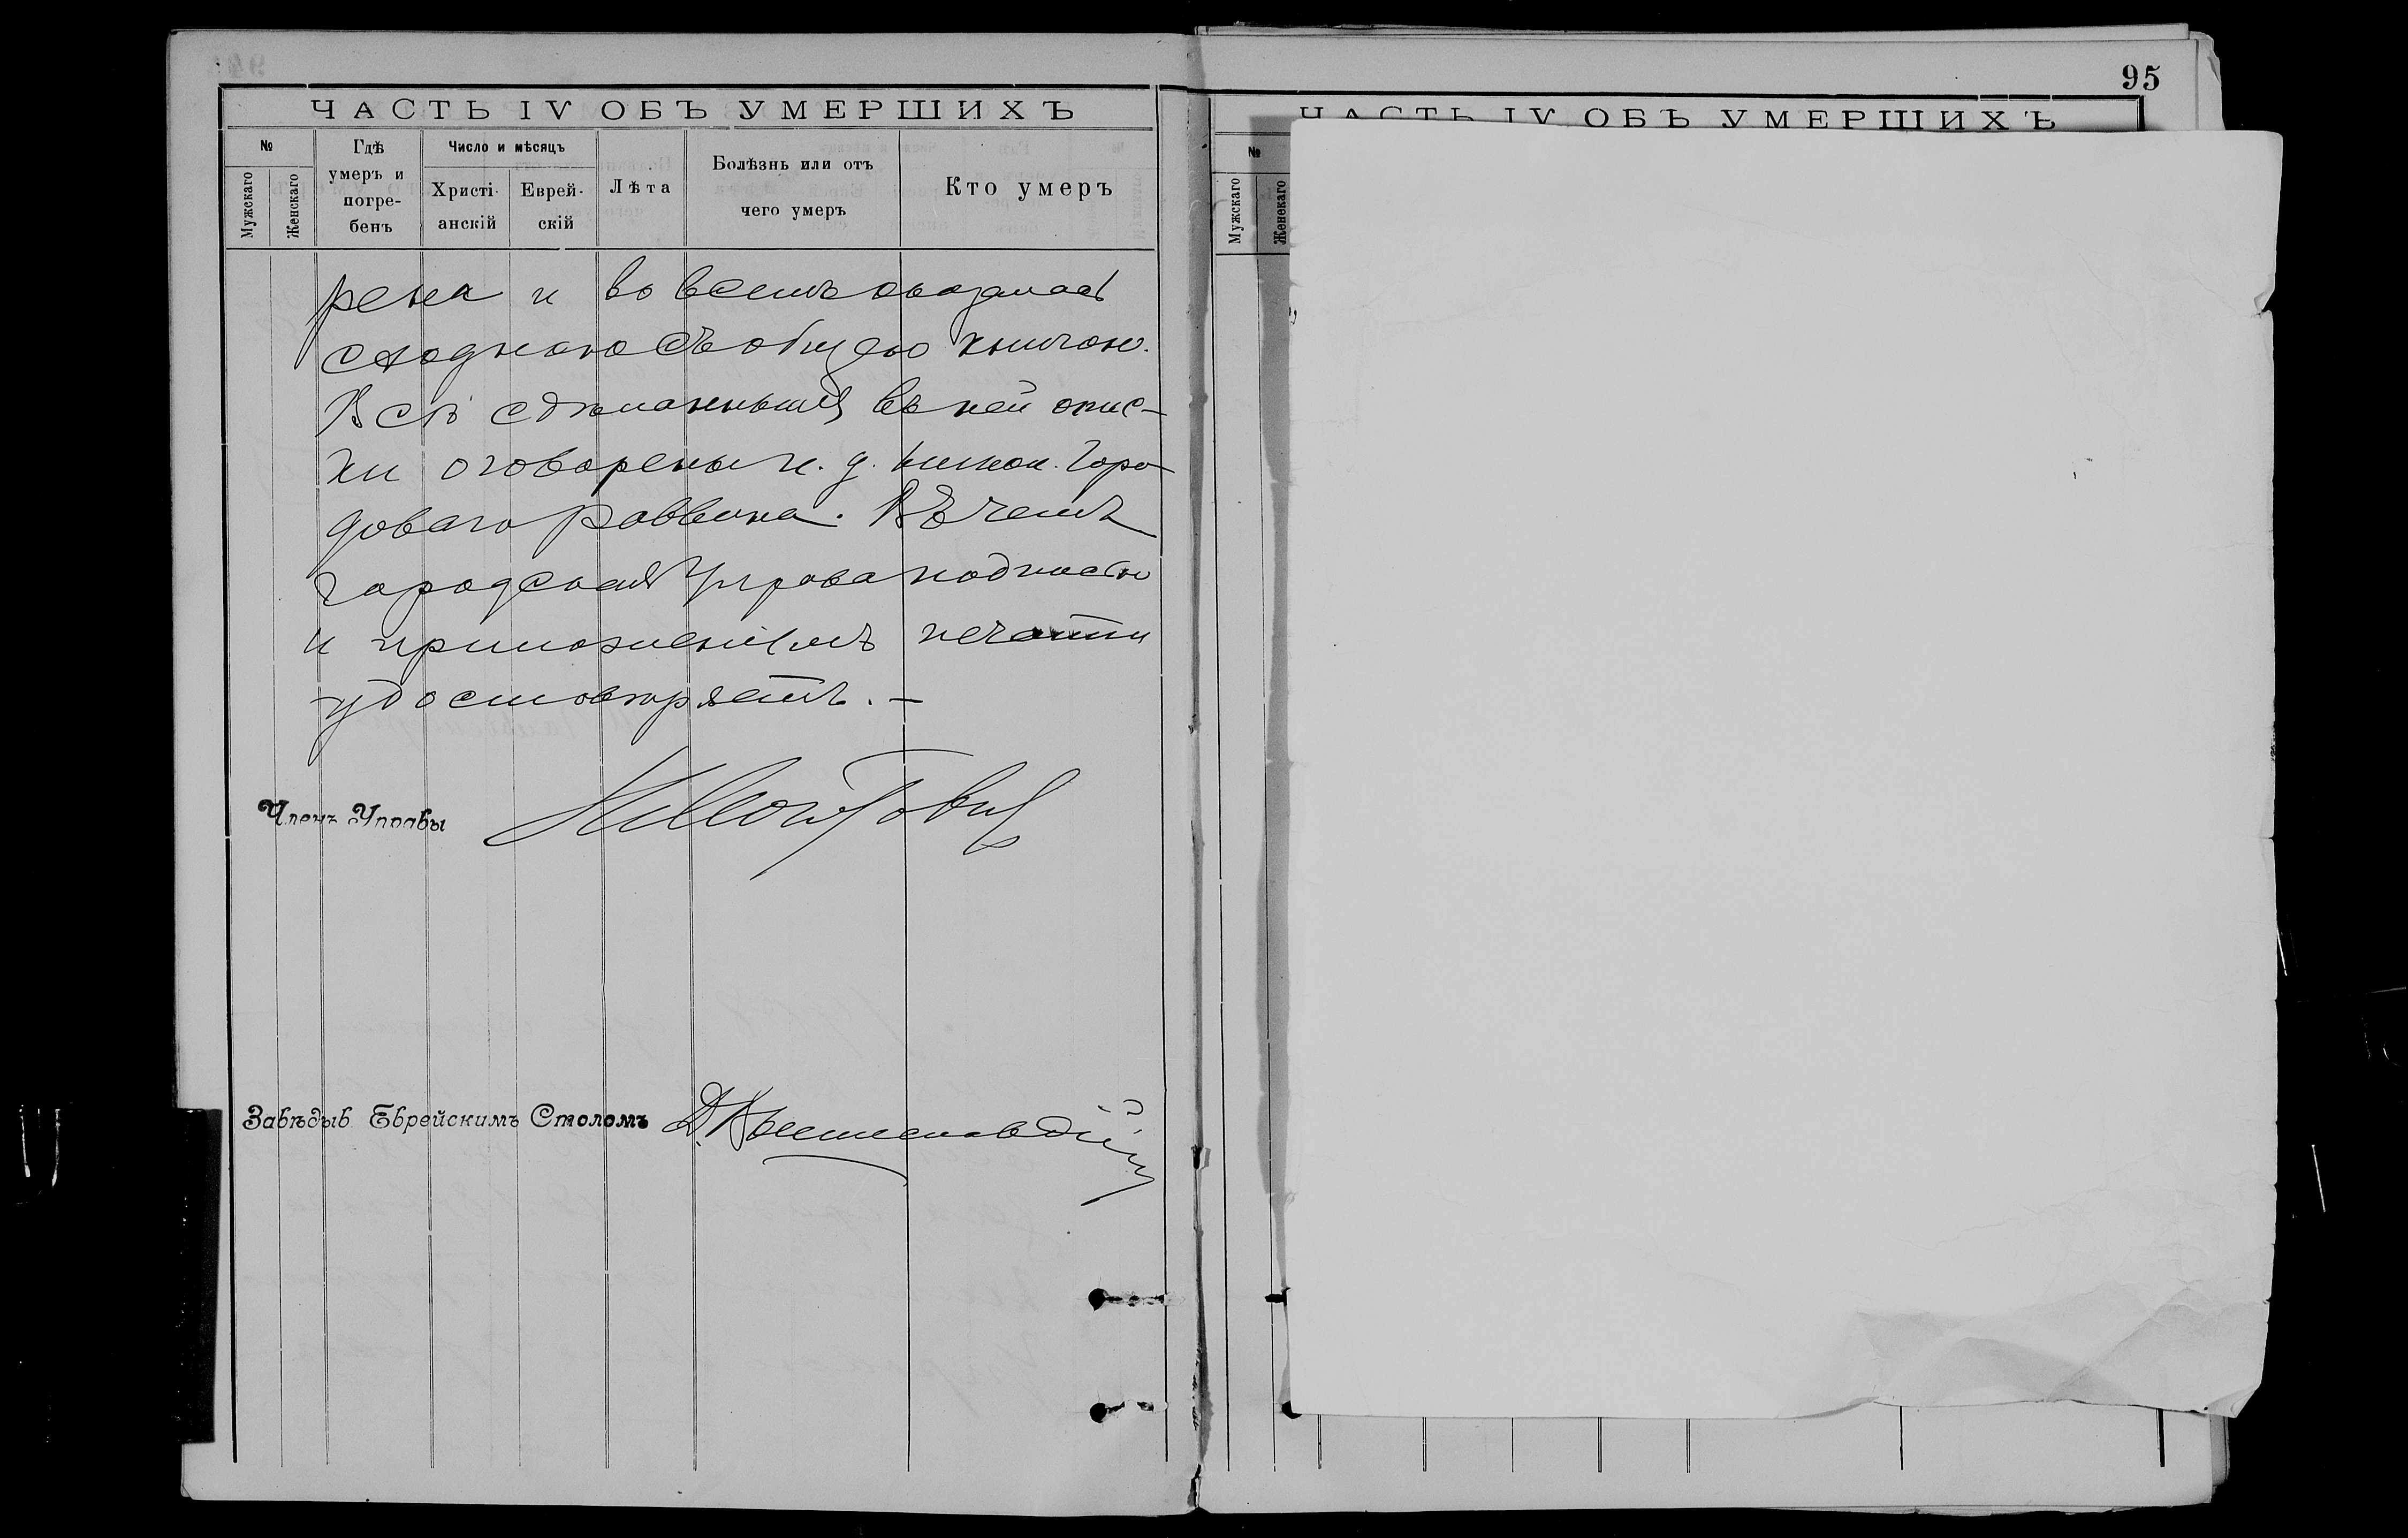 95
ЧАСТЬ IV ОБЪ УМЕРШИХЪ
№
Мужскаго
Женскаго
Гдѣ
умеръ и
погре-
бенъ
Число и мѣсяцъ
Христі-
анскій
Еврей-
скій
Лѣта
Болѣзнь или отъ
чего умеръ
Кто умеръ
рена и во всемъ оказалась
сходною съ общею книгою.
Всѣ сдѣланныя въ ней опис-
ки оговорены и. д. Горо-
доваго Раввина. Въ чемъ
Городская Управа подписью
и приложеніемъ печати
удостовѣряетъ. —
Членъ Управы
Завѣдыв Еврейскимъ Столомъ
ЧАСТЬ IV ОБЪ УМЕРШИХЪ
№
Мужскаго
Женскаго